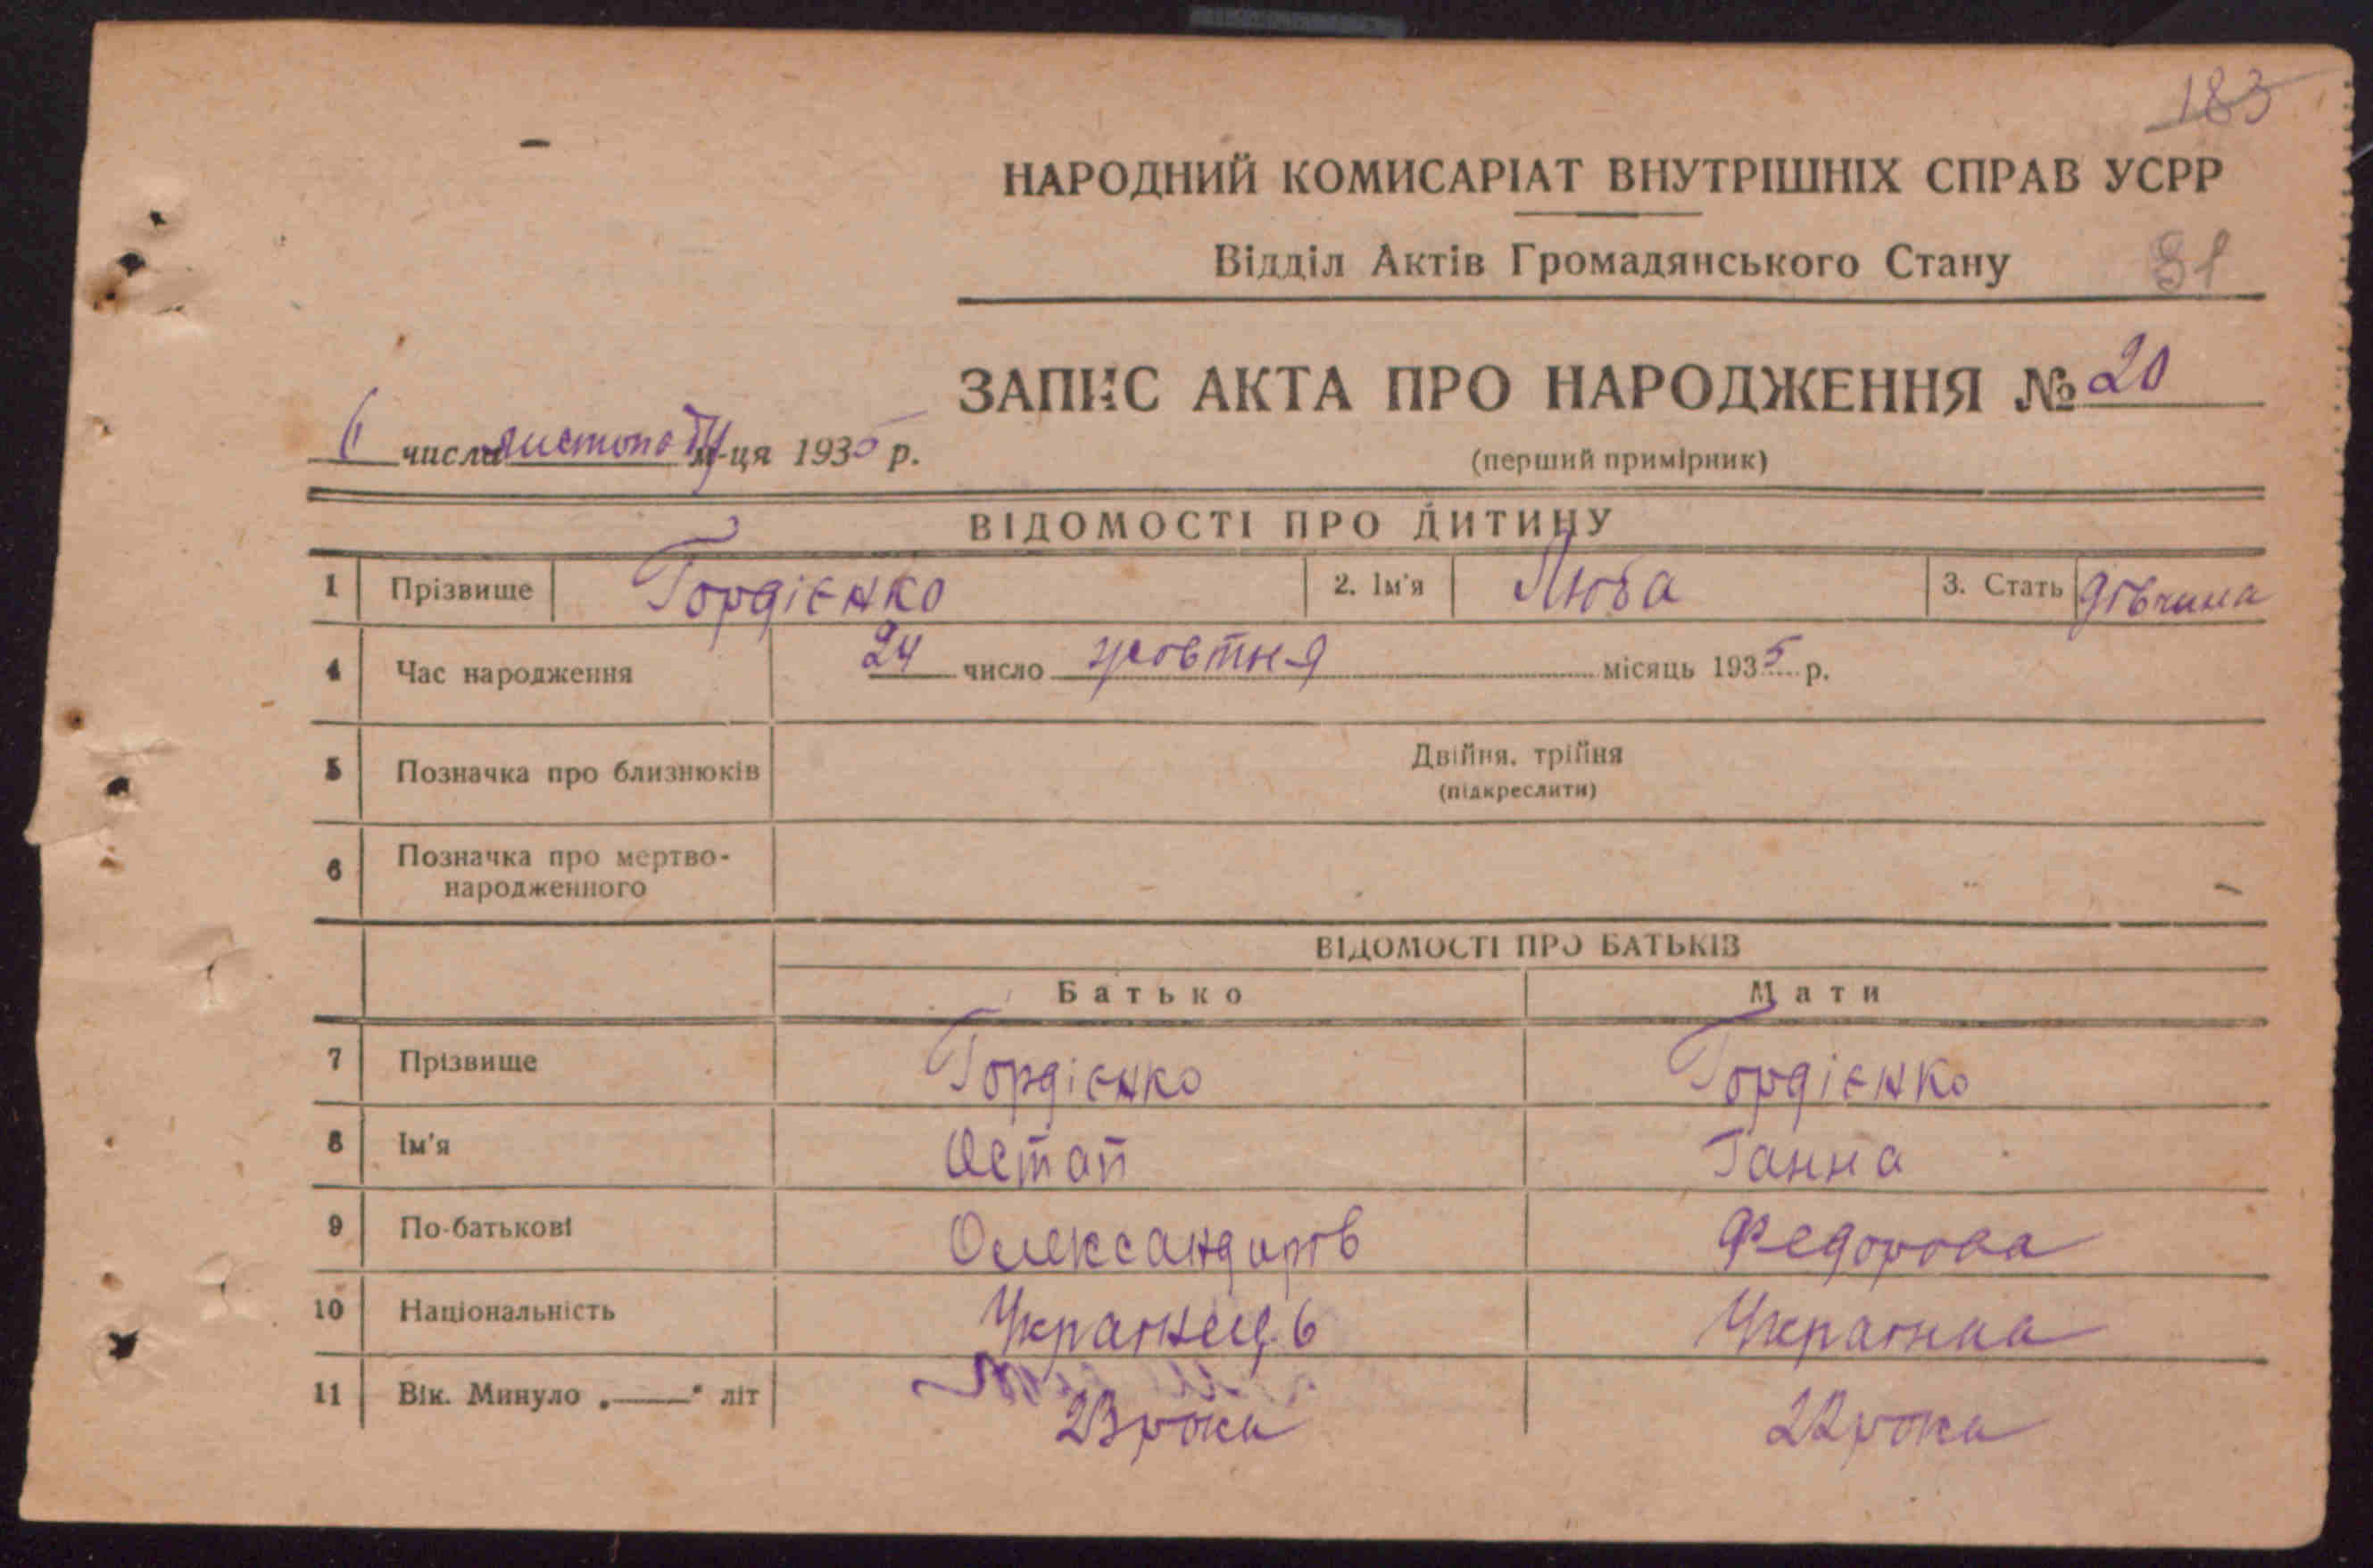 183
НАРОДНИЙ КОМИСАРІАТ ВНУТРІШНІХ СПРАВ УСРР
Відділ Актів Громадянського Стану 31
ЗАПИС АКТА ПРО НАРОДЖЕННЯ № 20
6 числа листопад м-ця 1935 р.
(перший примірник)
ВІДОМОСТІ ПРО ДИТИНУ
1 Прізвище Гордієнко 2. Ім'я Люба 3. Стать дівчина
4 Час народження 24 число жовтня місяць 1935 р.
5 Позначка про близнюків Двійня, трійня
(підкреслити)
6 Позначка про мертво-
народженного
ВІДОМОСТІ ПРО БАТЬКІВ
Батько Мати
7 Прізвище Гордієнко Гордієнко
8 Ім'я Остап Ганна
9 По-батькові Олександров Федорова
10 Національність Українець Українка
11 Вік. Минуло „——" літ 23 роки 22 роки